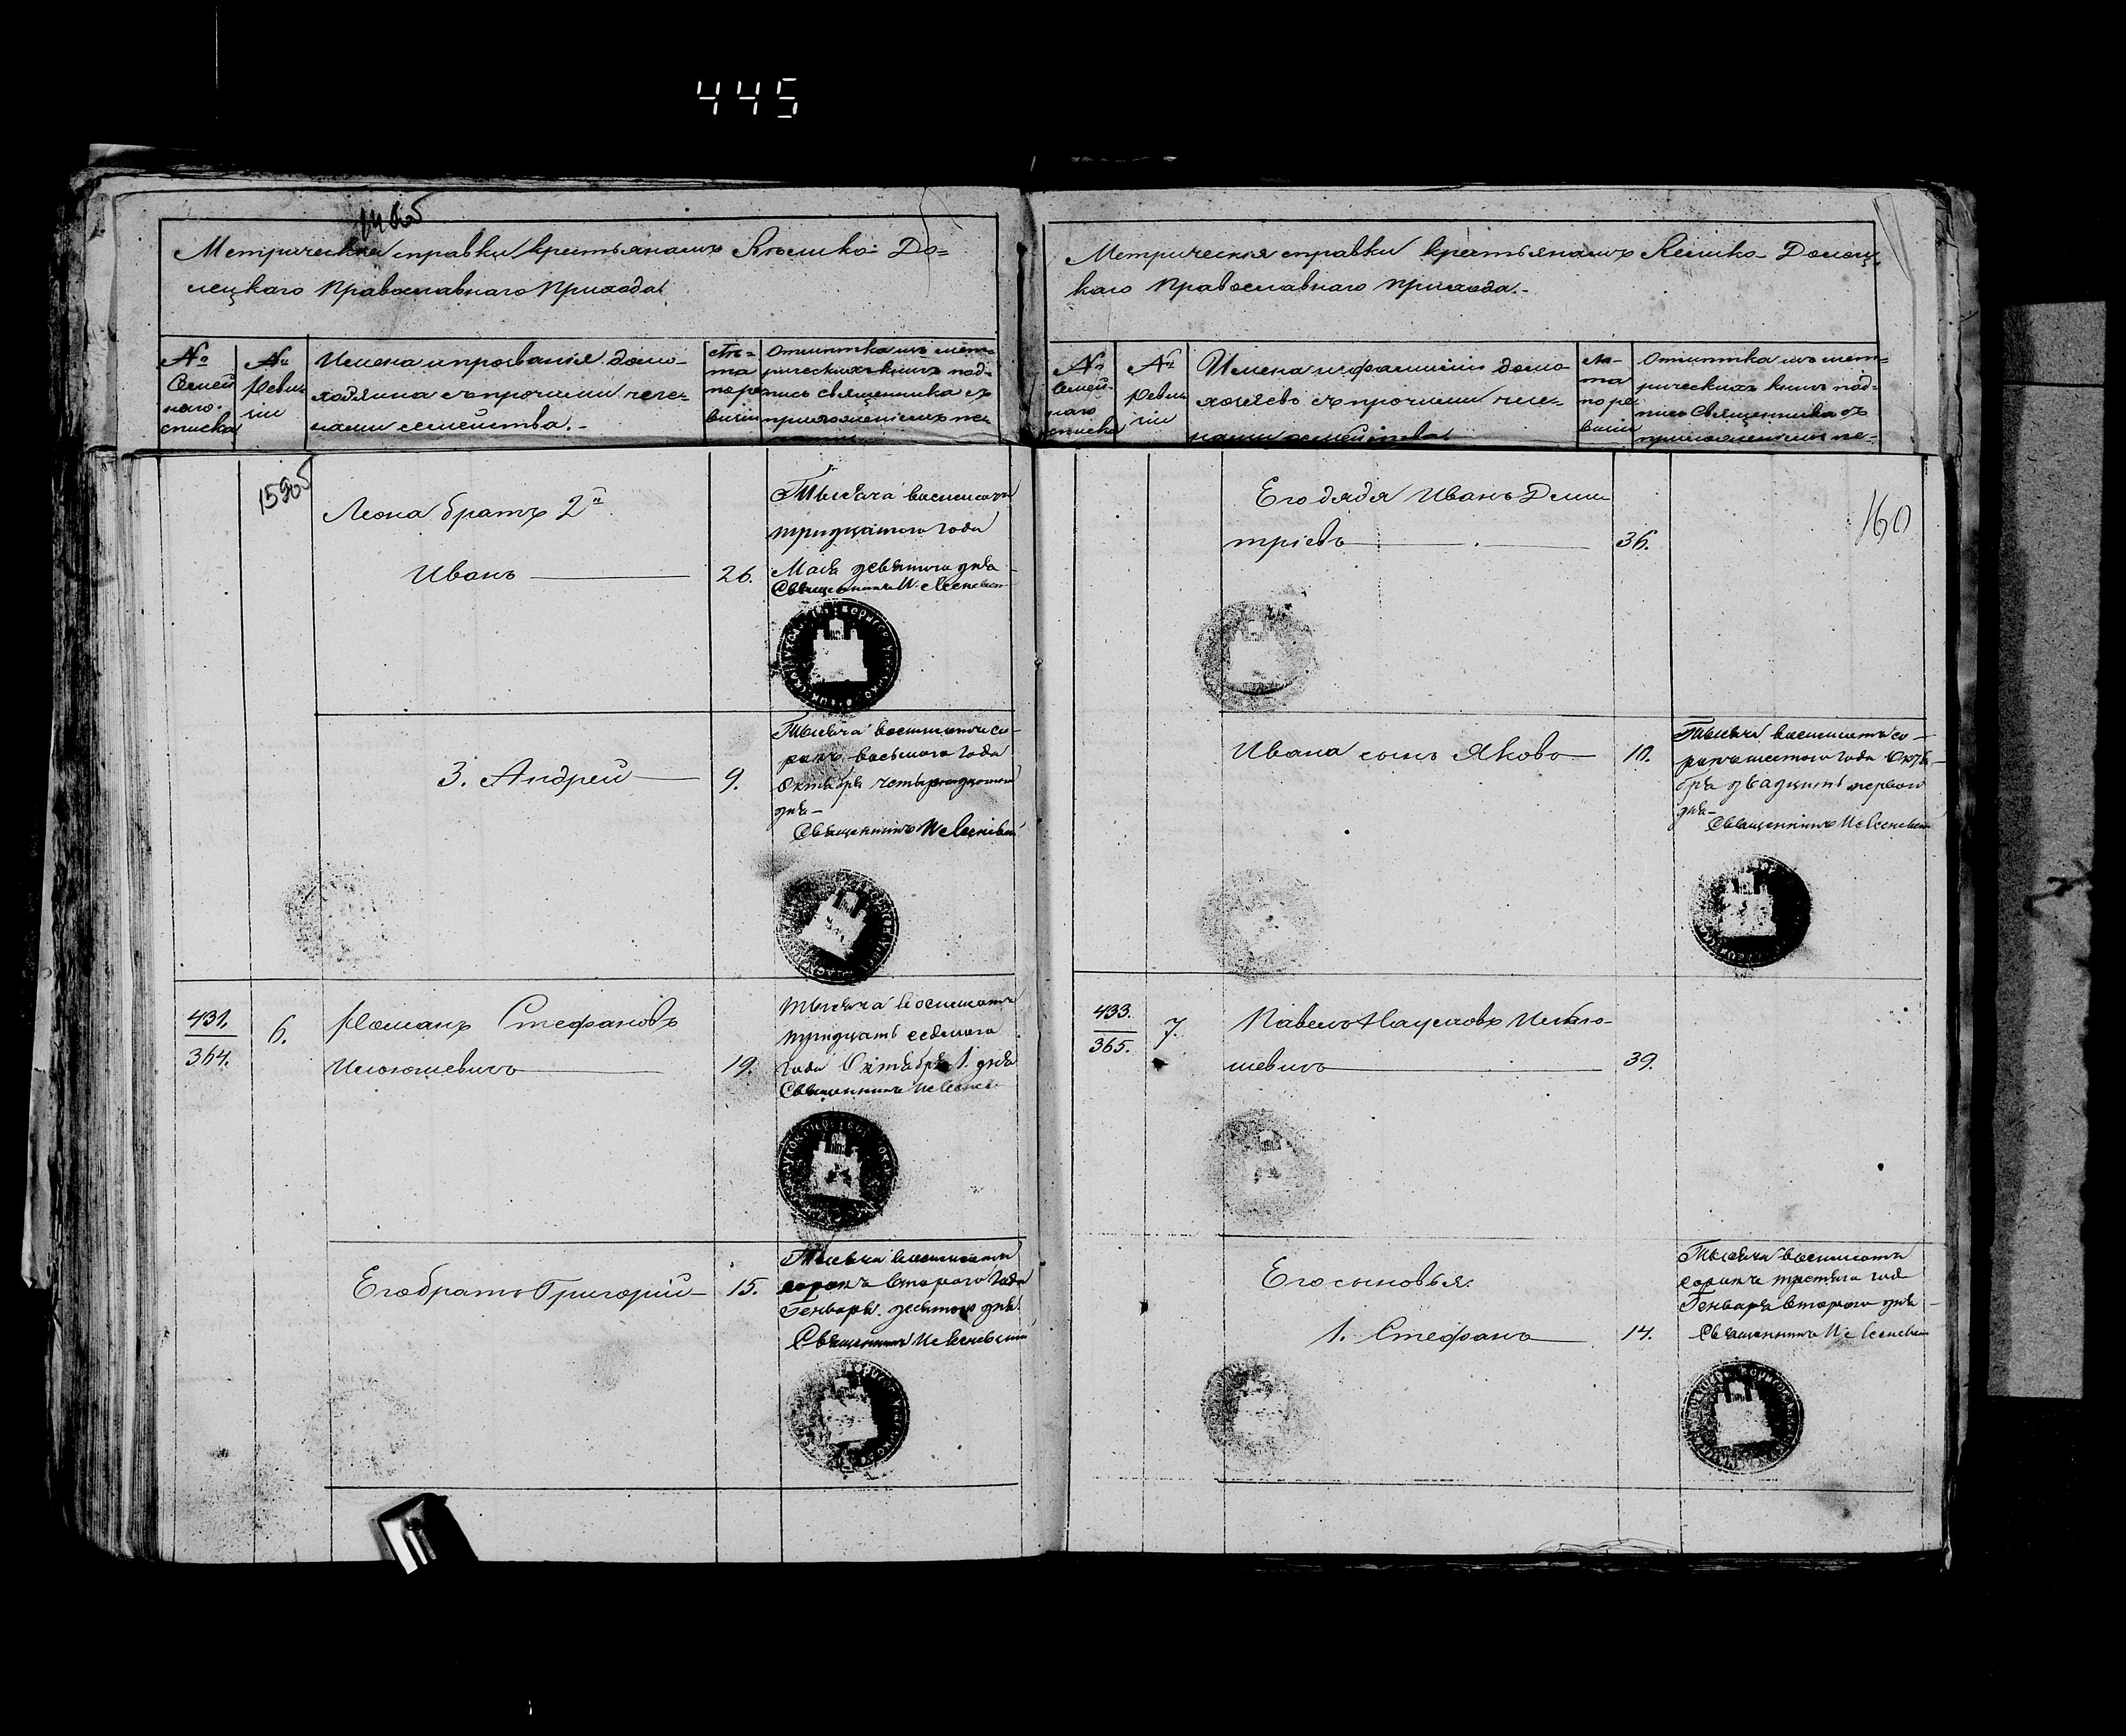 445
Метрическiя справки крестьянамъ Велико-До-
лецкаго Православнаго Прихода.
№
Семей
наго
списка
№
Ревизiи
Имена и прозванiя домо-
хозяина съ прочими чле-
нами семейства.
Лѣ-
та
по ре
визiи
Отмѣтка изъ мет-
рическихъ книгъ под-
пись священника съ
приложенiемъ пе-
Леона братъ 2й
Иванъ 26.
Тысяча восемьсотъ
тридцатого года
Мая девятого дня
Священникъ
3. Андрей 9.
Тысяча восемьсотъ со-
рокъ восьмого года
Октября четырнадцатого
дня
Священникъ
431.
364.
6.
Романъ Стефановъ
19.
Тысяча восемьсотъ
тридцать седьмого
года Октября 1. дня
Священникъ
Его братъ Григорiй 15.
Тысяча восемьсотъ
сорокъ второго года
Генваря десятого дня
Священникъ
Метрическiя справки крестьянамъ Велико-Долец-
каго Православнаго Прихода.
№
Семей-
наго
списка
№
Ревизiи
Имена и фамилiи домо
хозяевъ съ прочими чле-
нами семейства
Лѣ-
та
по ре
визiи
Отмѣтка изъ мет-
рическихъ книгъ под-
пись Священника съ
приложенiемъ пе-
160
Его дядя Иванъ Дми
трiевъ 36.
Ивана сынъ Яковъ 10.
Тысяча восемьсотъ со-
рокъ шестого года Октя-
бря двадцать первого
дня
Священникъ
433.
365.
7.
Павелъ Наумовъ
39.
Его сыновья.
1. Стефанъ 14.
Тысяча восемьсотъ
сорокъ третьяго года
Генваря второго дня
Священникъ